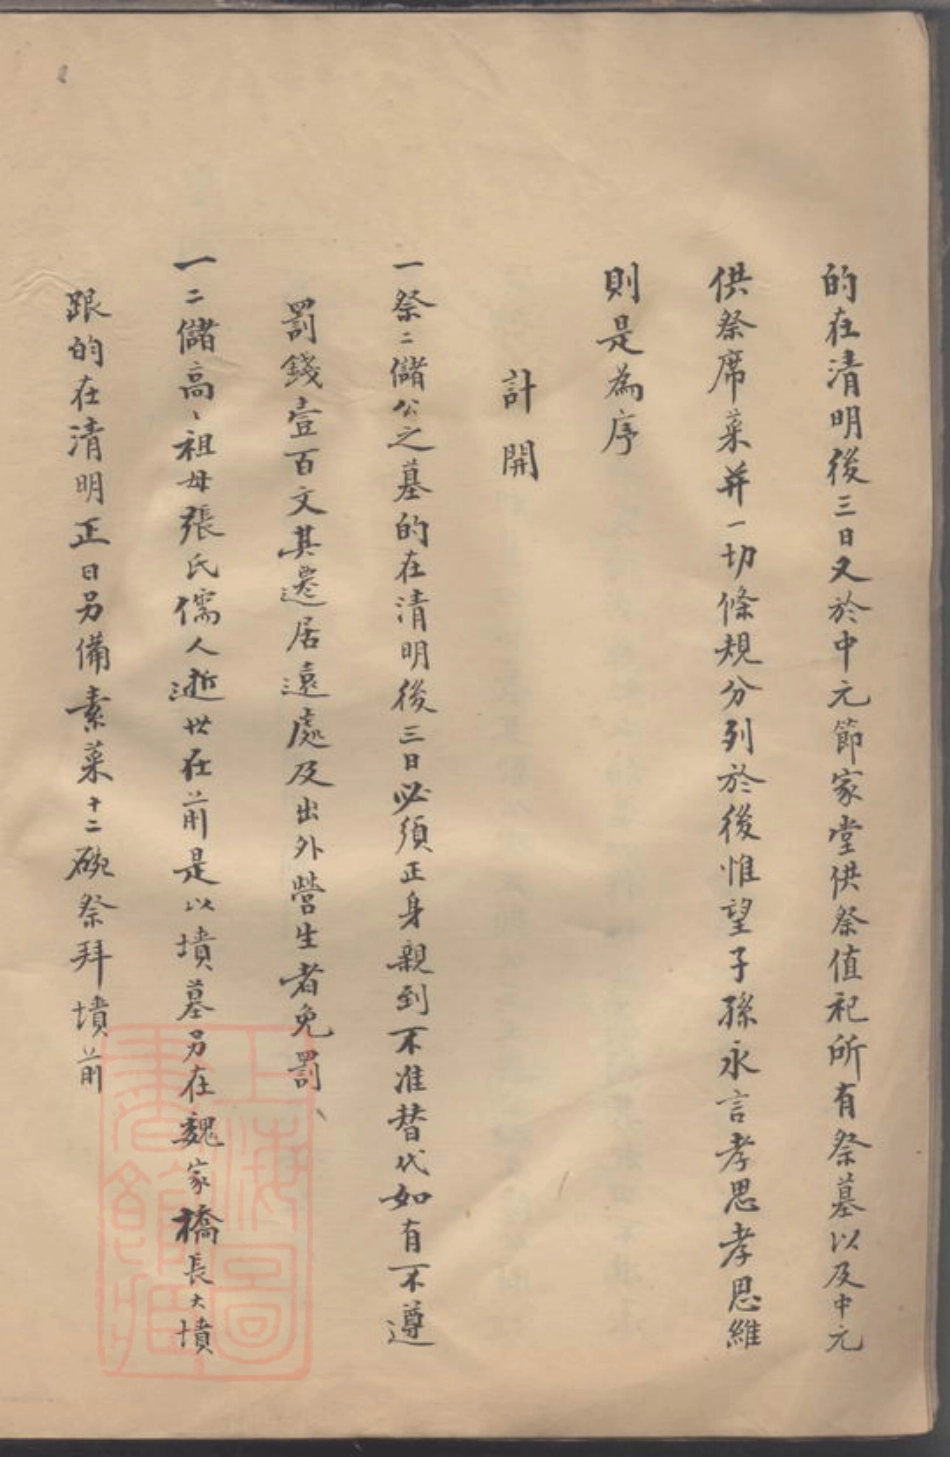 的在清明後三日又於中元節家堂供祭值祀所有祭墓以及中元
供祭席菜并一切條規分列於後惟望子孫永言孝思孝思維
則是為序
計開
一祭二儲公之墓的在清明後三日必須正身親到不准替代如有不遵
罰錢壹百文其遷居遠處及出外營生者免罰
一二儲高〻祖母張氏儒人逝世在前是以墳墓另在魏家橋長大墳
跟的在清明正日另備素菜十二碗祭拜墳前
上海圖
書館藏